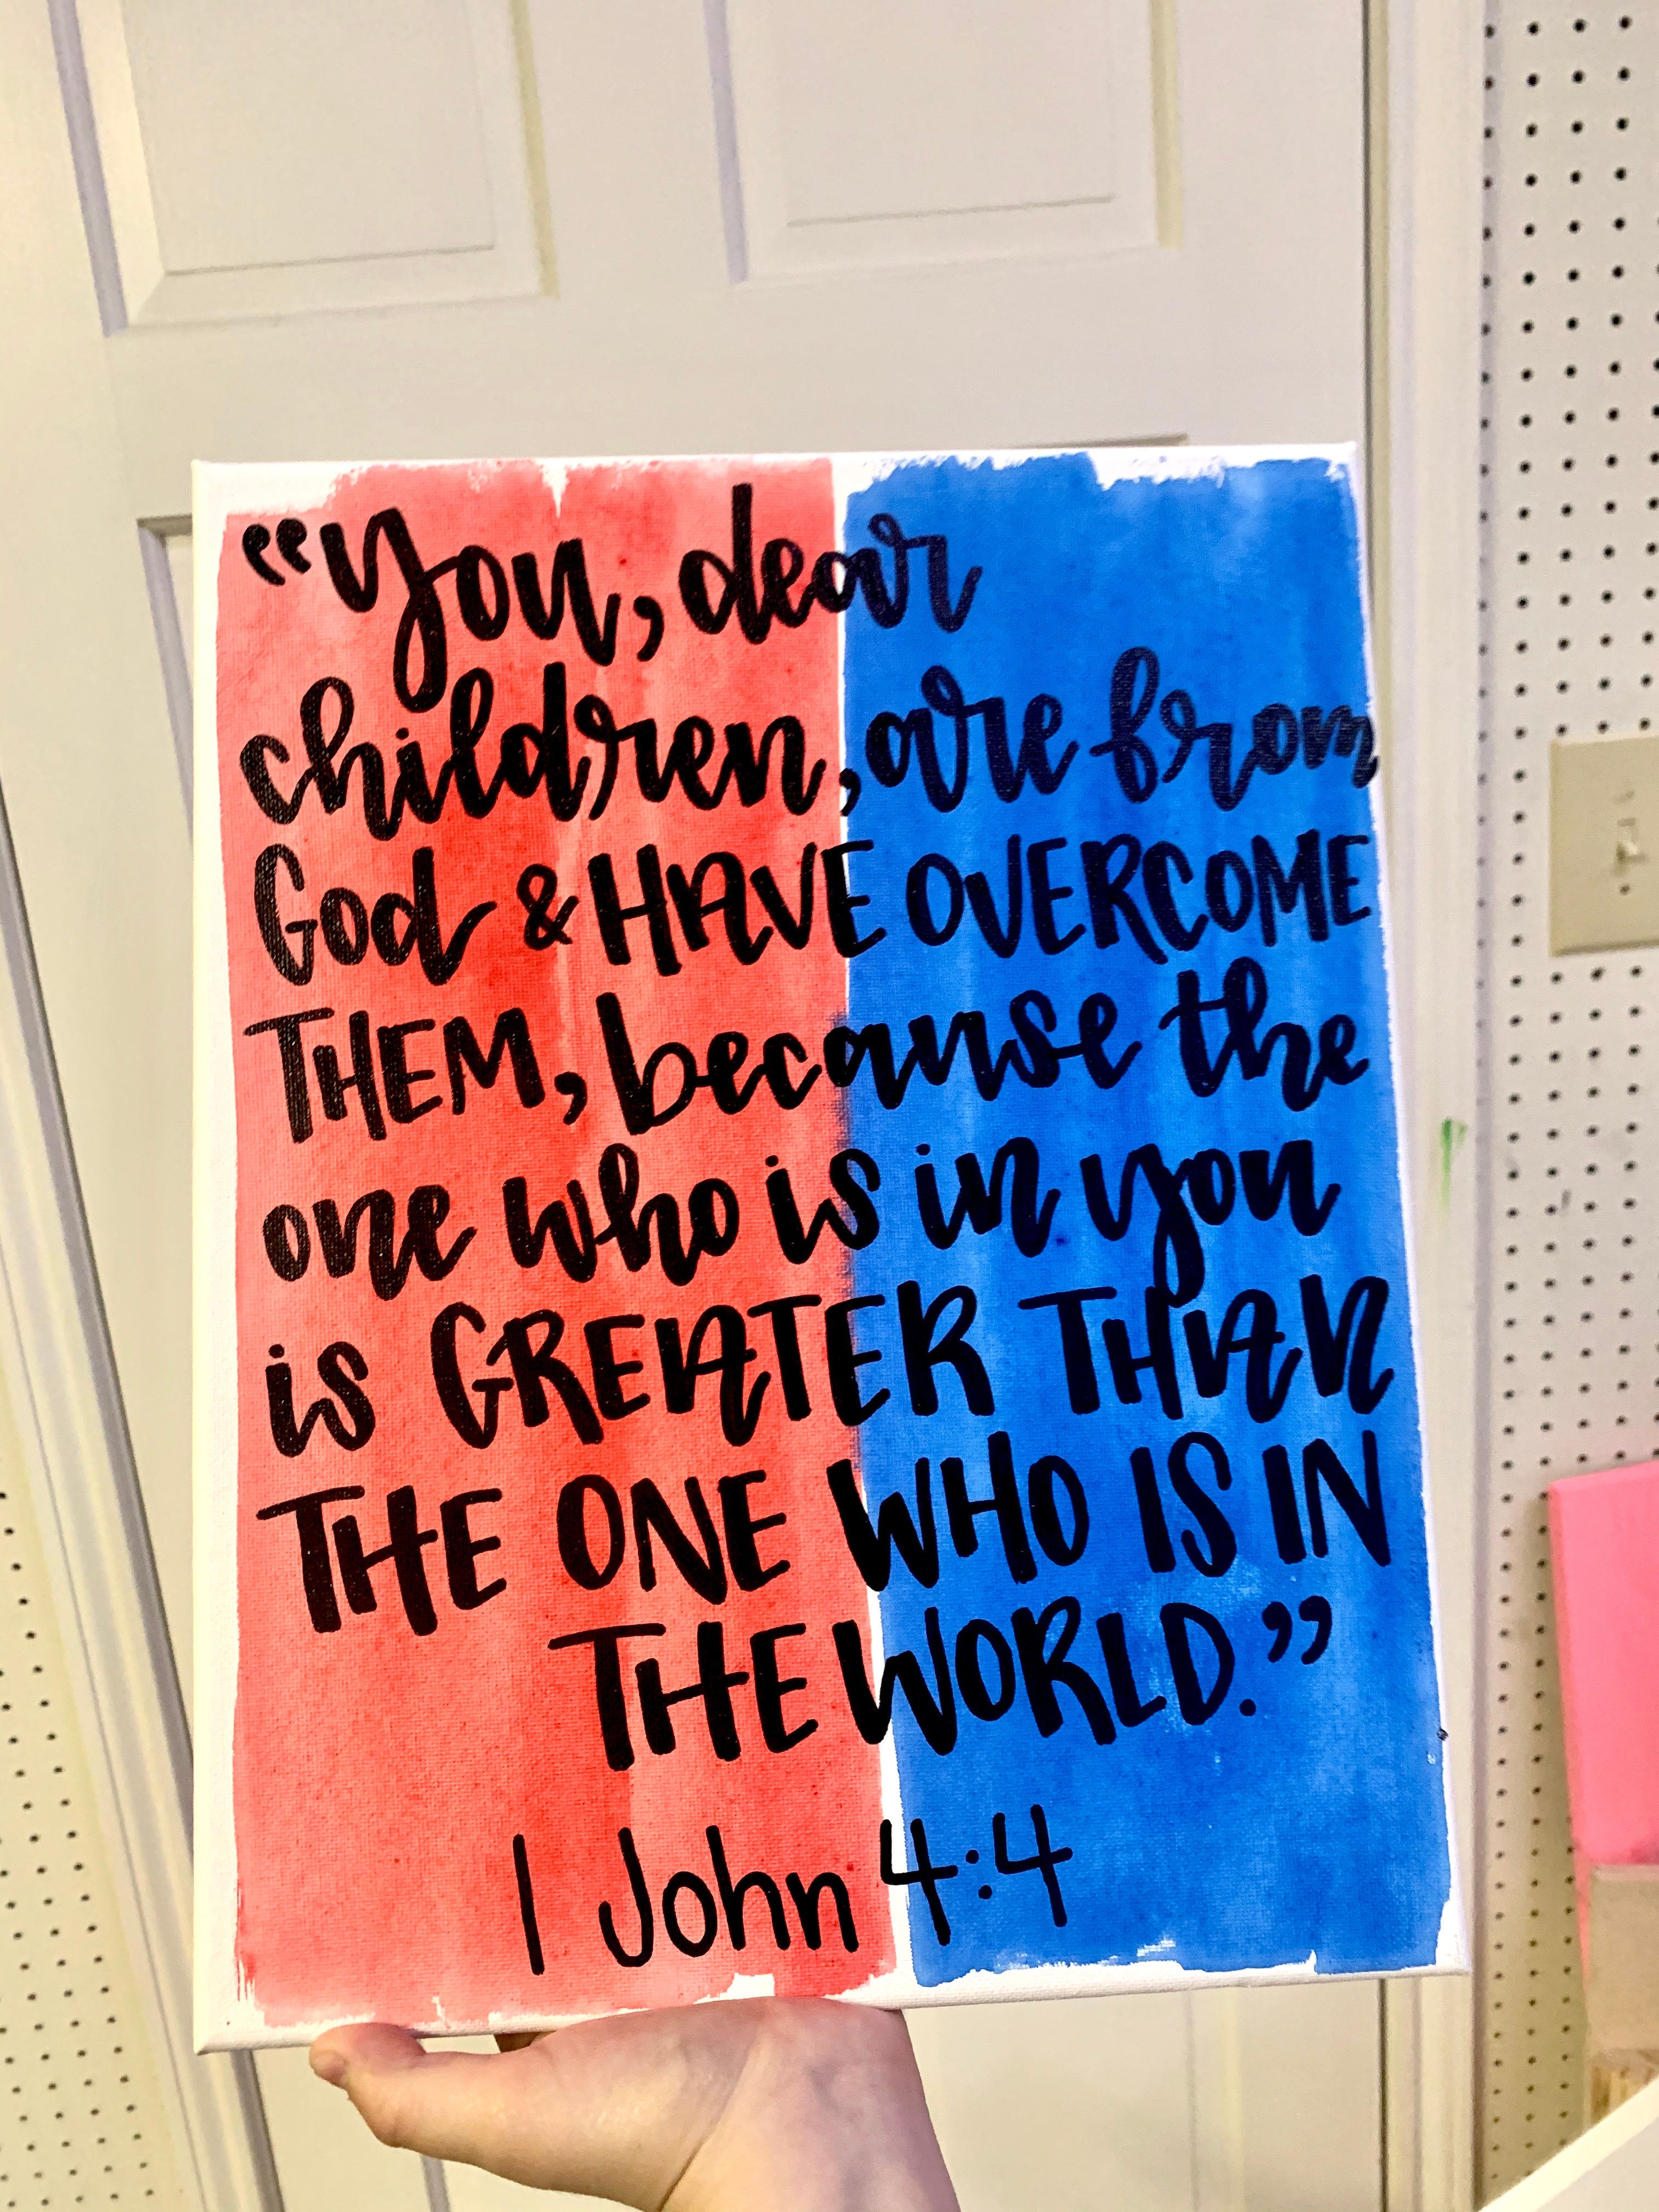 “You, dear
children, are from
God & HAVE OVERCOME
THEM, because the
one who is in you
is GREATER THAN
THE ONE WHO IS IN
THE WORLD.”
1 John 4:4